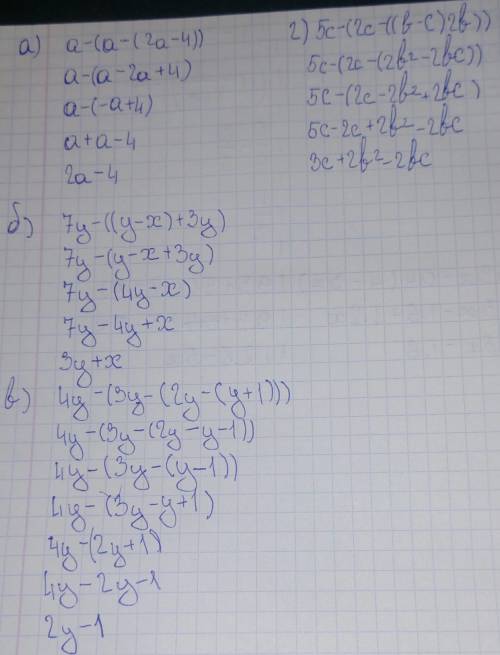 а) a-(a-(2a-4))
a-(a-2a+4)
a-(-a+4)
a+a-4
2a-4
б) 7y-((y-x)+3y)
7y-(y-x+3y)
7y-(4y-x)
7y-4y+x
3y+x
в) 4y-(3y-(2y-(y+1)))
4y-(3y-(2y-y-1))
4y-(3y-(y-1))
4y-(3y-y+1)
4y-(2y+1)
4y-2y-1
2y-1
г) 5c-(2c-((b-c)2b))
5c-(2c-(2b²-2bc))
5c-(2c-2b²+2bc)
5c-2c+2b²-2bc
3c+2b²-2bc